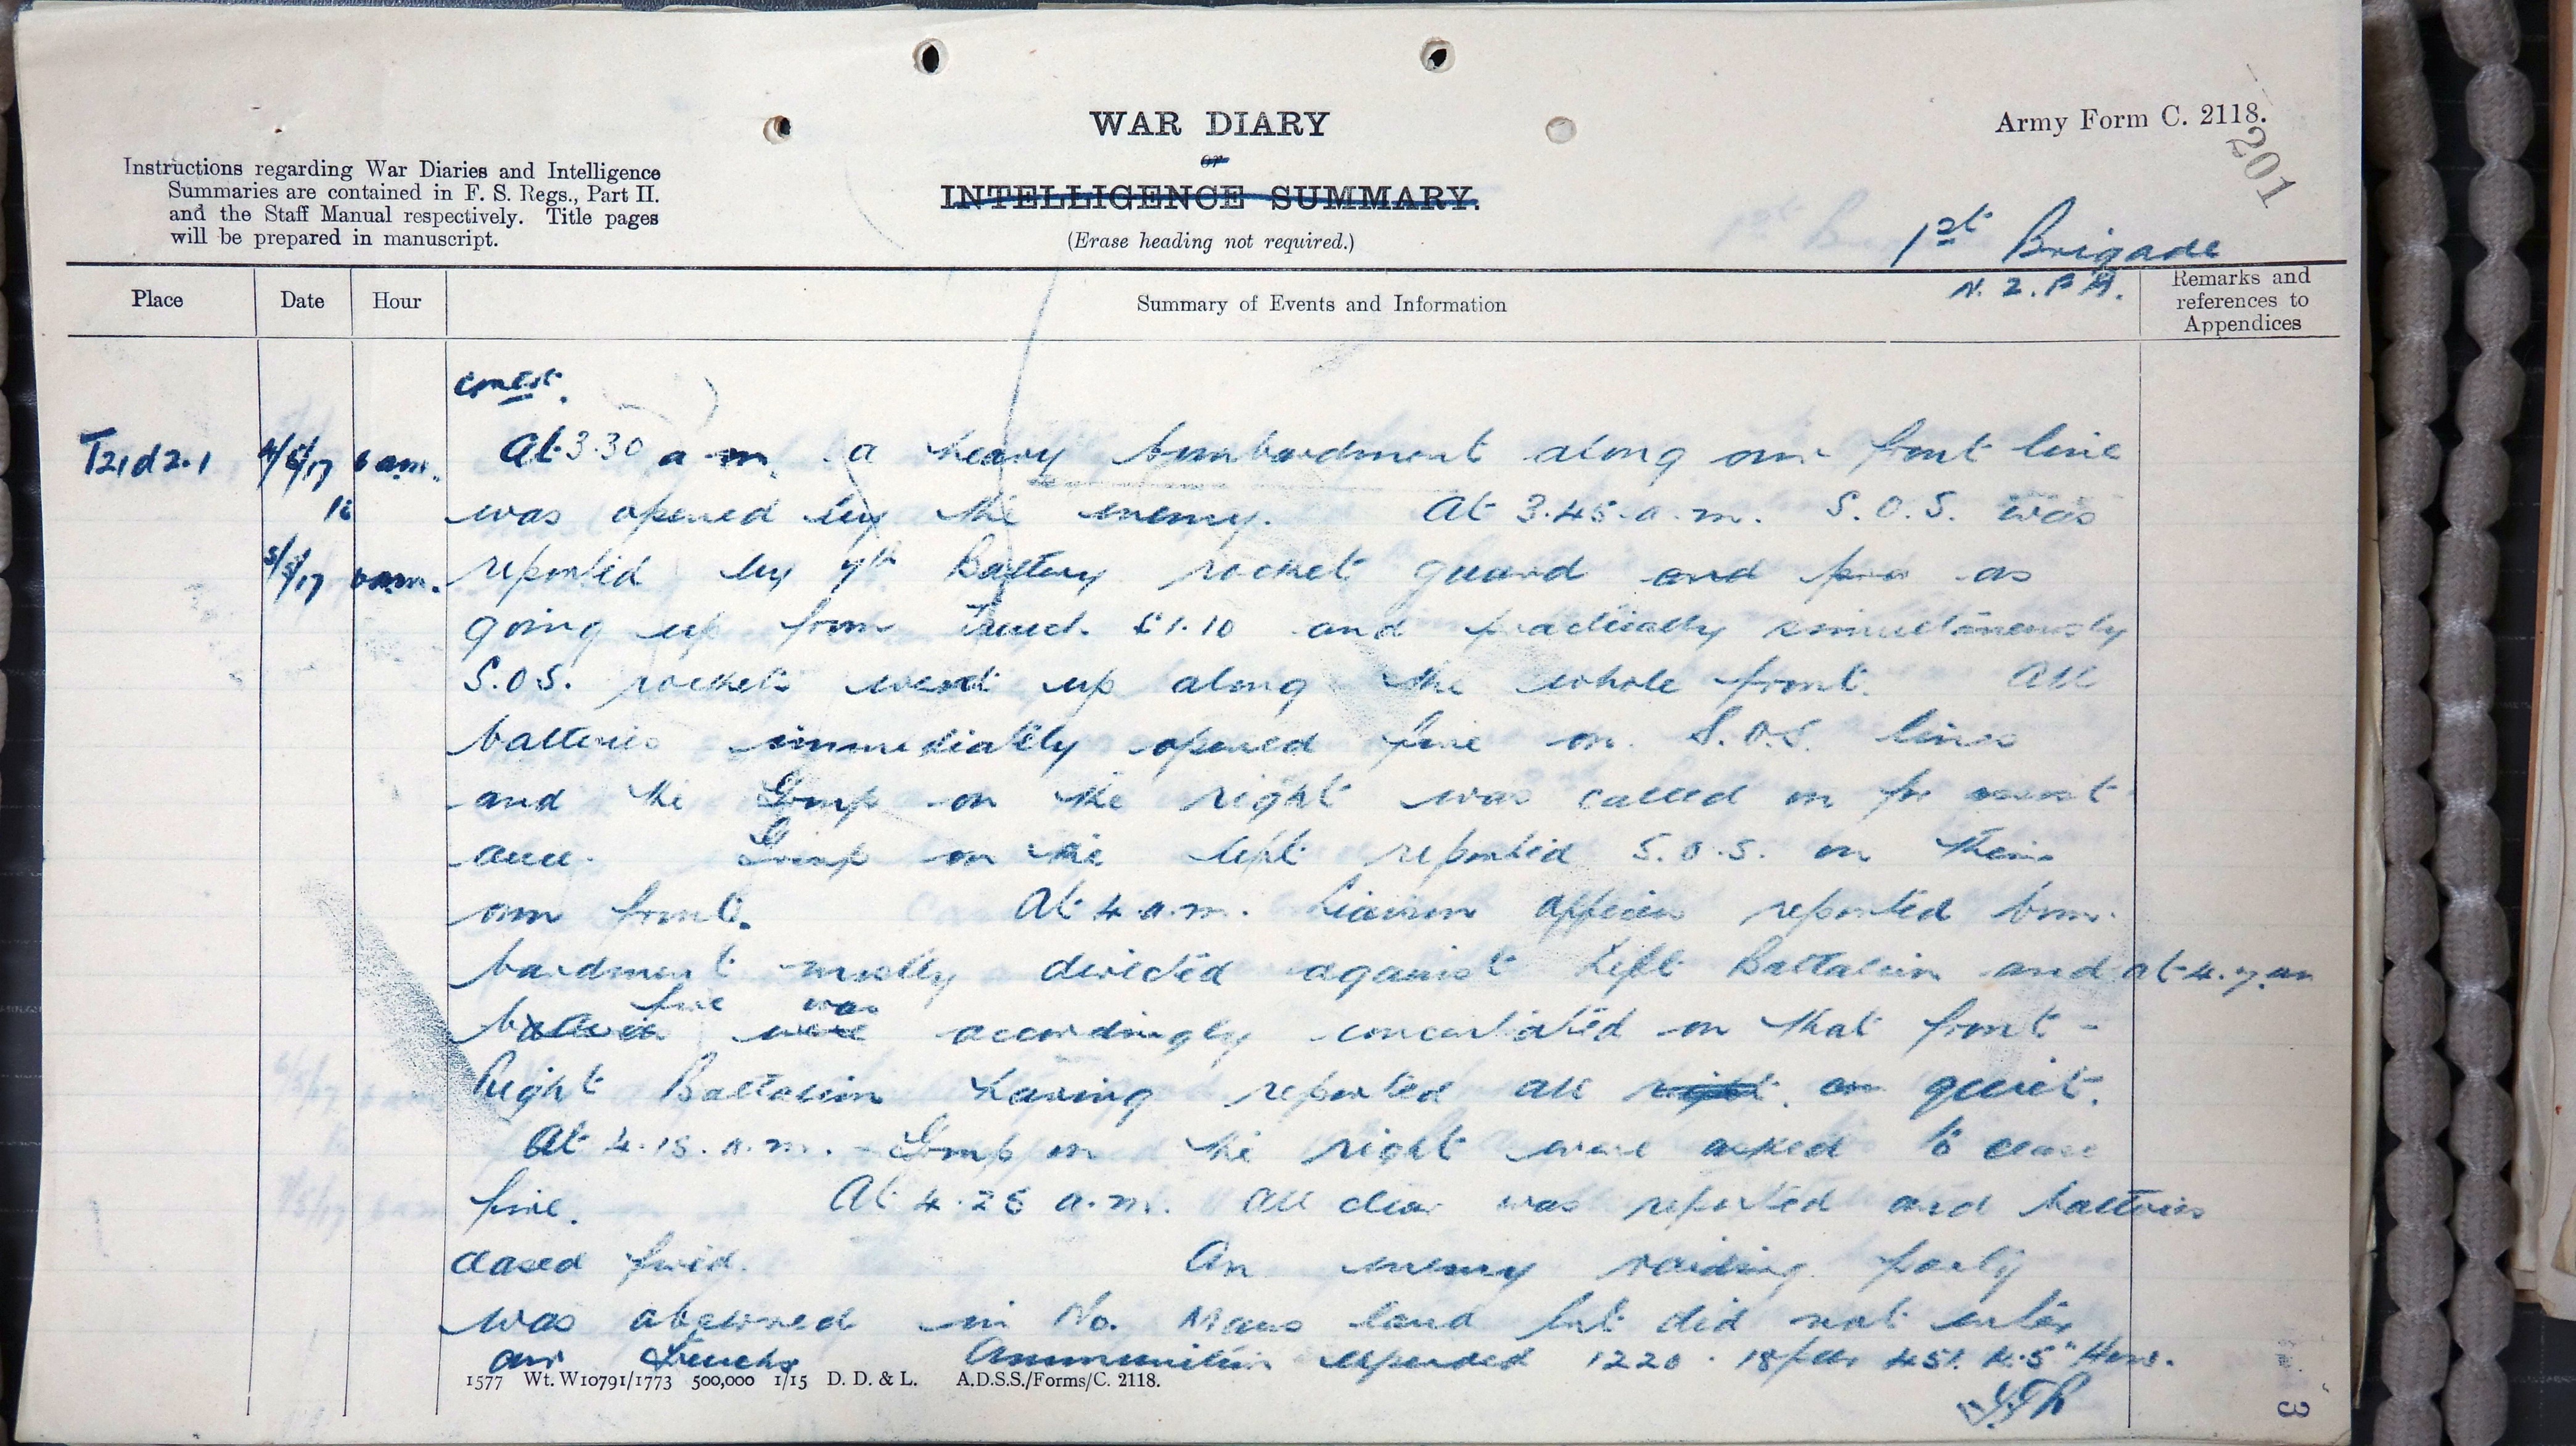 WAR DIARY
or
INTELLIGENCE SUMMARY.
(Erase heading not required.)
Army Form C. 2118.
201
Instructions regarding War Diaries and Intelligence
Summaries are contained in F. S. Regs., Part II.
and the Staff Manual respectively. Title pages
will be prepared in manuscript.
1st Brigade
N.Z.F.A.
Place Date Hour Summary of Events and Information Remarks and references to Appendices
contd.
T21d2.1 4/5/17 6 am. At 3.30 a.m. a heavy bombardment along our front line
to was opened by the enemy. At 3.45 a.m. S.O.S. was
5/5/17 6 am. reported by 7th Battery rocket guard and as
going up from Trench. 1.10 and practically simultaneously
S.O.S. rockets went up along the whole front. All
batteries immediately opened fire on S.O.S. lines
and the Group on the right was called on for assist
ance. Group on the left reported S.O.S. on their
own front. At 4 a.m. Liaison officer reported bom-
bardment mostly directed against Left Battalion and at 4.7 am
fire was
batteries were accordingly concentrated on that front -
Right Battalion having reported all right. on quiet.
At 4.15. a.m. - Group on the right were asked to cease
fire. At 4.25 a.m. All clear was reported and batteries
ceased fired. An enemy raiding party
was observed in No. Mans land but did not enter
our trenchs Ammunition expended 1220. 18 pdr 451. 4.5" Hows.
1577 Wt. W10791/1773 500,000 1/15 D. D. & L. A.D.S.S./Forms/C. 2118.
3